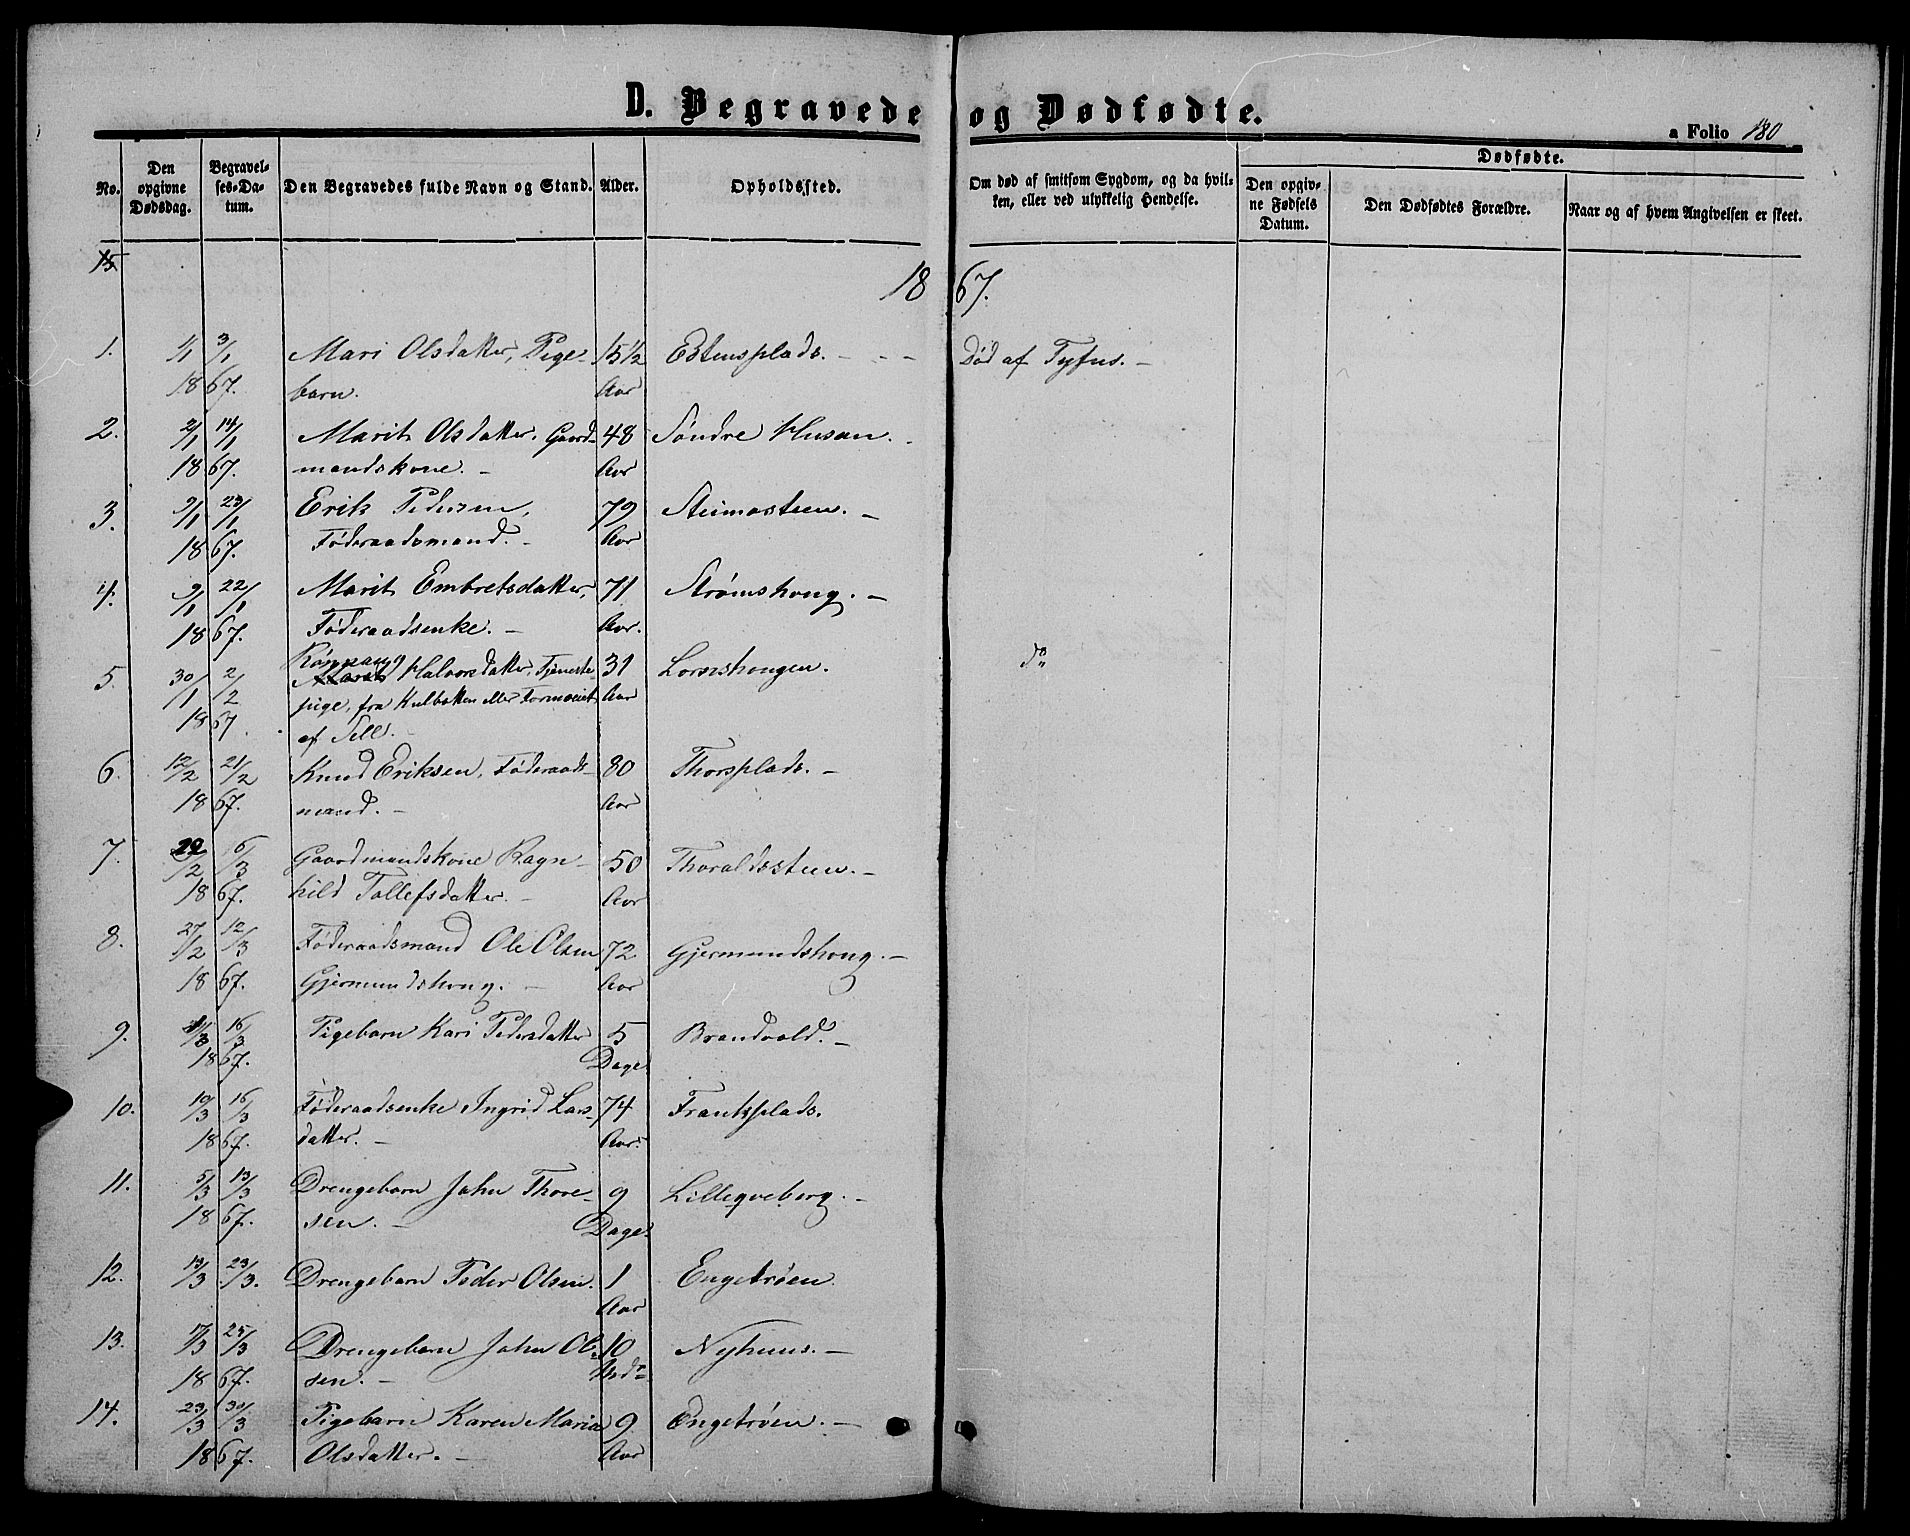 D. Begravede og Dødfødte.
a Folio 180
No.
Den opgivne Dødsdag.
Begravelses-Datum.
Den Begravedes fulde Navn og Stand.
Alder.
Opholdssted.
Om død af smitsom Sygdom, og da hvilken, eller ved ulykkelig Hendelse.
Dødfødte.
Den opgivne Fødsels Datum.
Den Dødfødtes Forældre.
Naar og af hvem Angivelsen er skeet.
15
1867.
1. 1/1 3/1 Mari Olsdatter, Pige- 15 1/2 Estensplads. - - - Død af Tyfus. -
1867. barn. Aar
2. 2/1 14/1 Marit Olsdatter, Gaard- 48 Søndre Husan. -
1867. mandskone. - Aar
3. 9/1 23/1 Erik Pedersen, 79 Steimosteen. -
1867. Føderaadsmand. - Aar
4. 9/1 22/1 Marit Embretsdatter, 71 Strømshoug. -
1867. Føderaadsenke. - Aar.
5. 30/1 2/2 Rønnaug Halvorsdatter, Tjeneste- 31 Lorvshougen. do
pige, fra Kulbakken eller Formoeiet Aar
1867. af Sell. -
6. 12/2 21/2 Knud Eriksen, Føderaads- 80 Thorsplads. -
1867. mand. - Aar
7. 22/2 6/3 Gaardmandskone Ragn- 50 Thoraldssteen. -
1867. hild Tollefsdatter. - Aar
8. 27/2 12/3 Føderaadsmand Ole Olsen 72 Gjermundshoug. -
1867. Gjermundshoug. - Aar
9. 16/3 Pigebarn Kari Pedersdatter 5 Brandvold. -
1867. Dage
10. 10/3 16/3 Føderaadsenke Ingrid Lars- 74 Frankplads.
1867. datter. - Aar.
11. 5/3 13/3 Drengebarn John Thore- 9 Lilleqveberg. -
1867. sen. - Dage
12. 13/3 23/3. Drengebarn Peder Olsen. 1 Engetrøen.
Aar
13. 17/3 25/3 Drengebarn John Ol- 10 Nyhuus. -
1867. sen. - Md
14. 23/3 30/3 Pigebarn Karen Maria 9 Engetrøen. -
1867. Olsdatter. - Aar